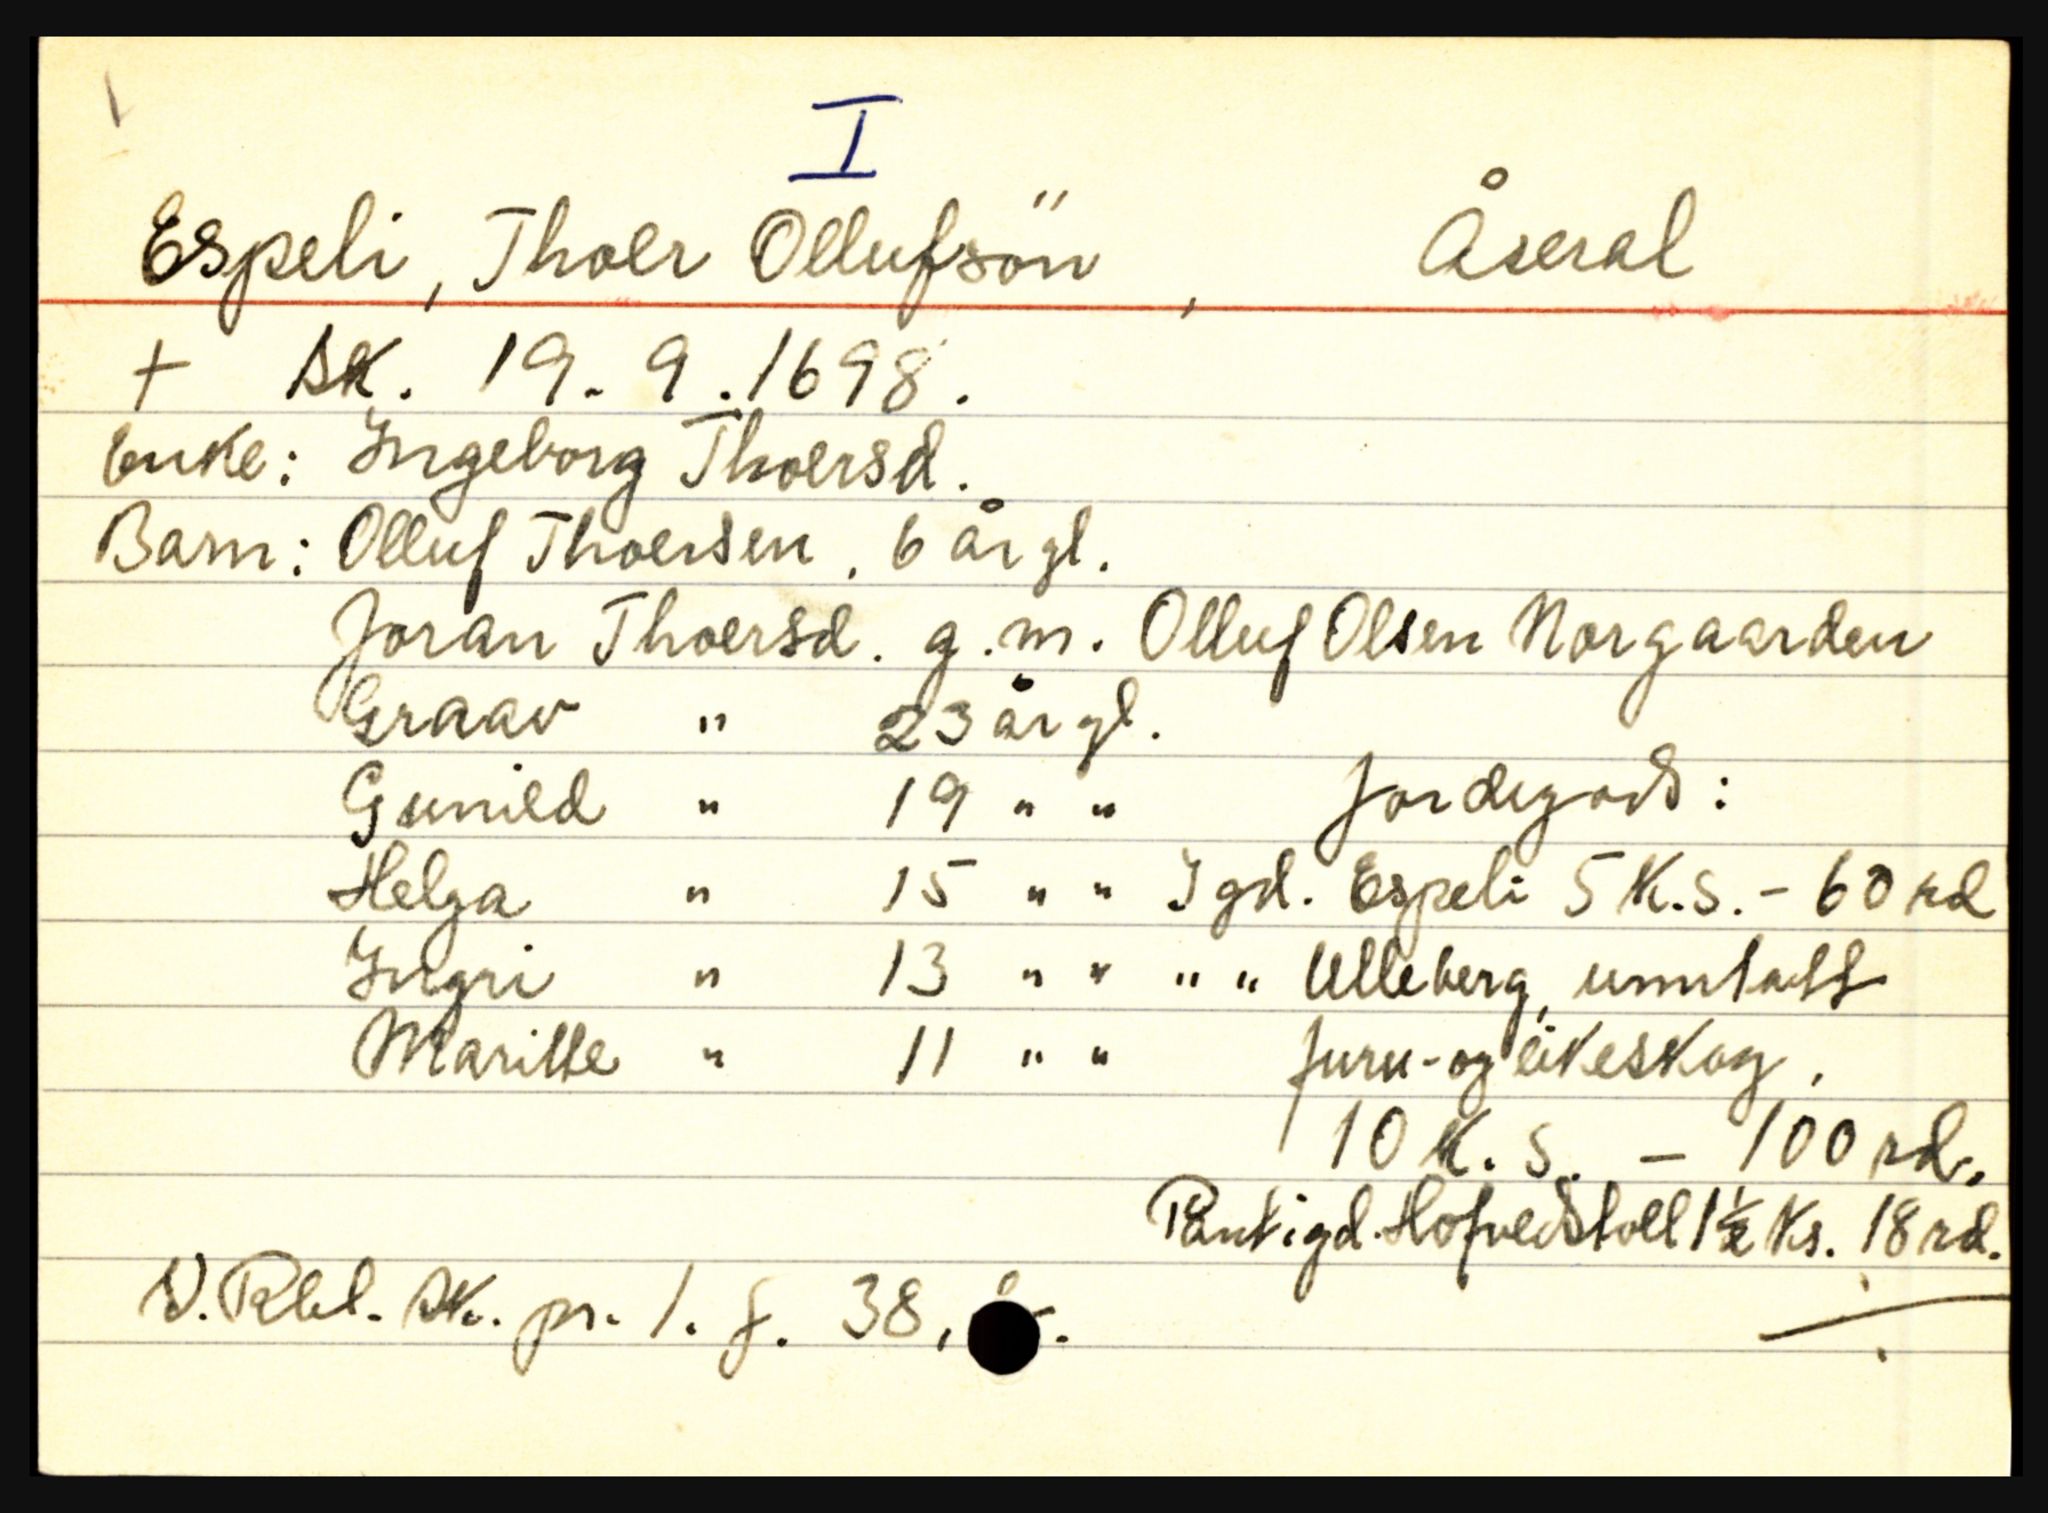 I
Espeli, Thoer Ollufsön, Åseral
+ sk. 19. 9. 1698.
Enke: Ingeborg Thoersd.
Barn: Olluf Thoersen, 6 år gl.
Joran Thoersd. g. m. Olluf Olsen Norgaarden
Graav " 23 år gl.
Gunild " 19 " " Jordegods:
Helga " 15 " " I gd. Espeli 5 K.S. - 60 rd
Ingri " 13 " " " " Ulleberg, unntatt
Maritte " 11 " " furu- og eikeskog.
10 K. S. - 100 rd.
Pant i gd. Hofvedstoll 1½ Ks. 18 rd.
V. Rbl. sk. pr. 1. f. 38,